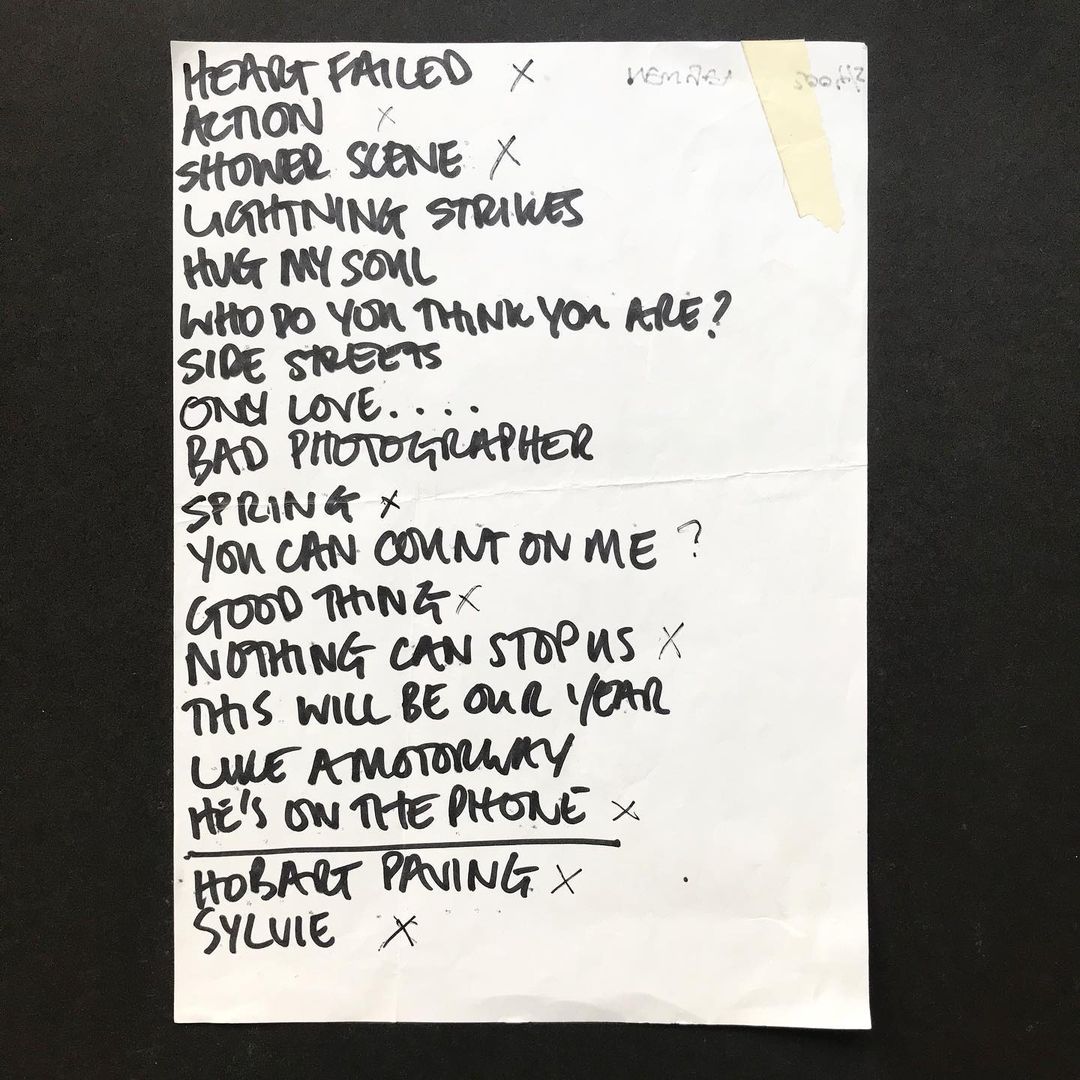 HEART FAILED X
ACTION X
SHOWER SCENE X
LIGHTNING STRIKES
HUG MY SOUL
WHO DO YOU THINK YOU ARE?
SIDE STREETS
ONLY LOVE....
BAD PHOTOGRAPHER
SPRING X
YOU CAN COUNT ON ME ?
GOOD THING X
NOTHING CAN STOP US X
THIS WILL BE OUR YEAR
LIKE A MOTORWAY
HE'S ON THE PHONE X
HOBART PAVING X
SYLVIE X